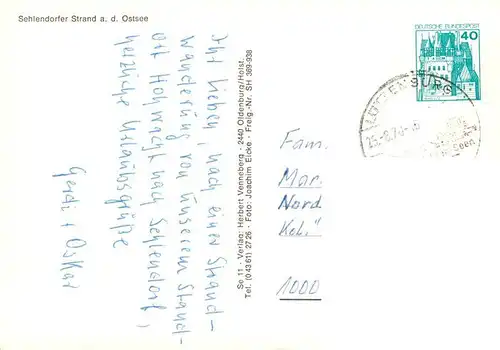 Sehlendorfer Strand a. d. Ostsee
Ihr Lieben, nach einer Strand-
wanderung von unserem Stand-
ort Hohwacht nach Sehlendorf,
herzliche Urlaubsgrüße
Gerdi + Oskar
Se 11 - Verlag: Herbert Venneberg - 2440 Oldenburg/Holst.
Tel. (0 43 61) 27 26 - Foto: Joachim Eicke - Freig.-Nr. SH 369-938
DEUTSCHE BUNDESPOST
40
LÜTJENBURG
Seen
Fam.
Mar.
Nord
Kol."
1000